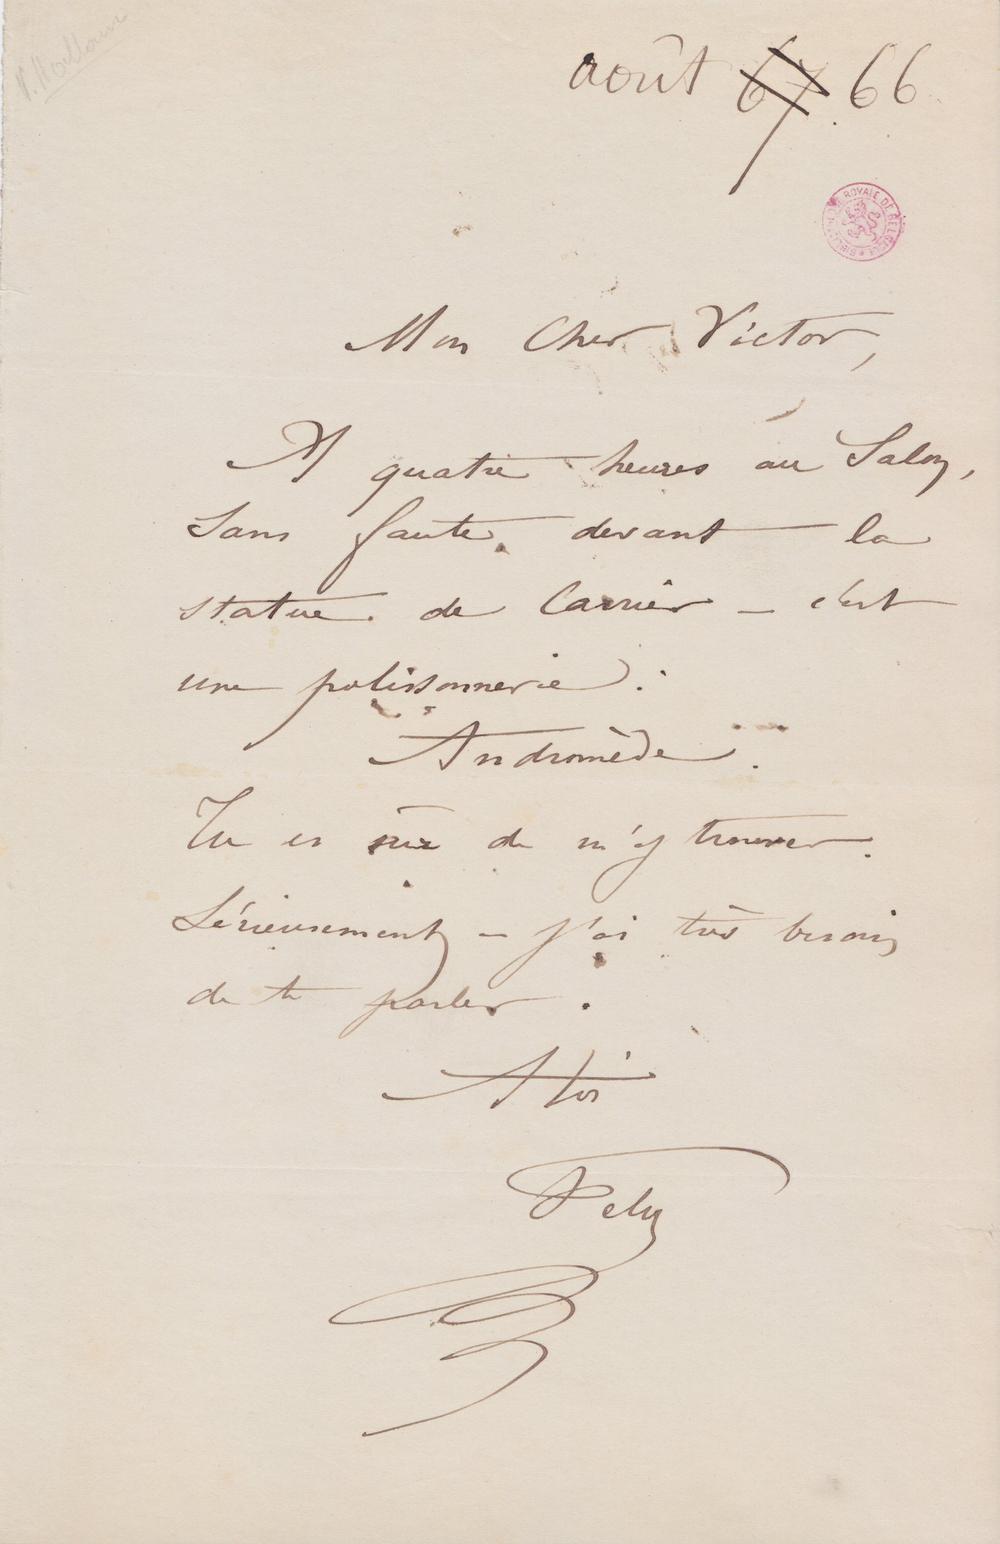 août 67 66
BIBLIOTHÈQUE ROYALE DE BELGIQUE
Mon Cher Victor,
A quatre heures au Salon,
Sans faute, devant la
statue de Carrier – c'est
une polissonnerie :
Andromède.
Tu es sûr de m'y trouver.
Sérieusement – j'ai très besoin
de te parler.
A toi
Fély